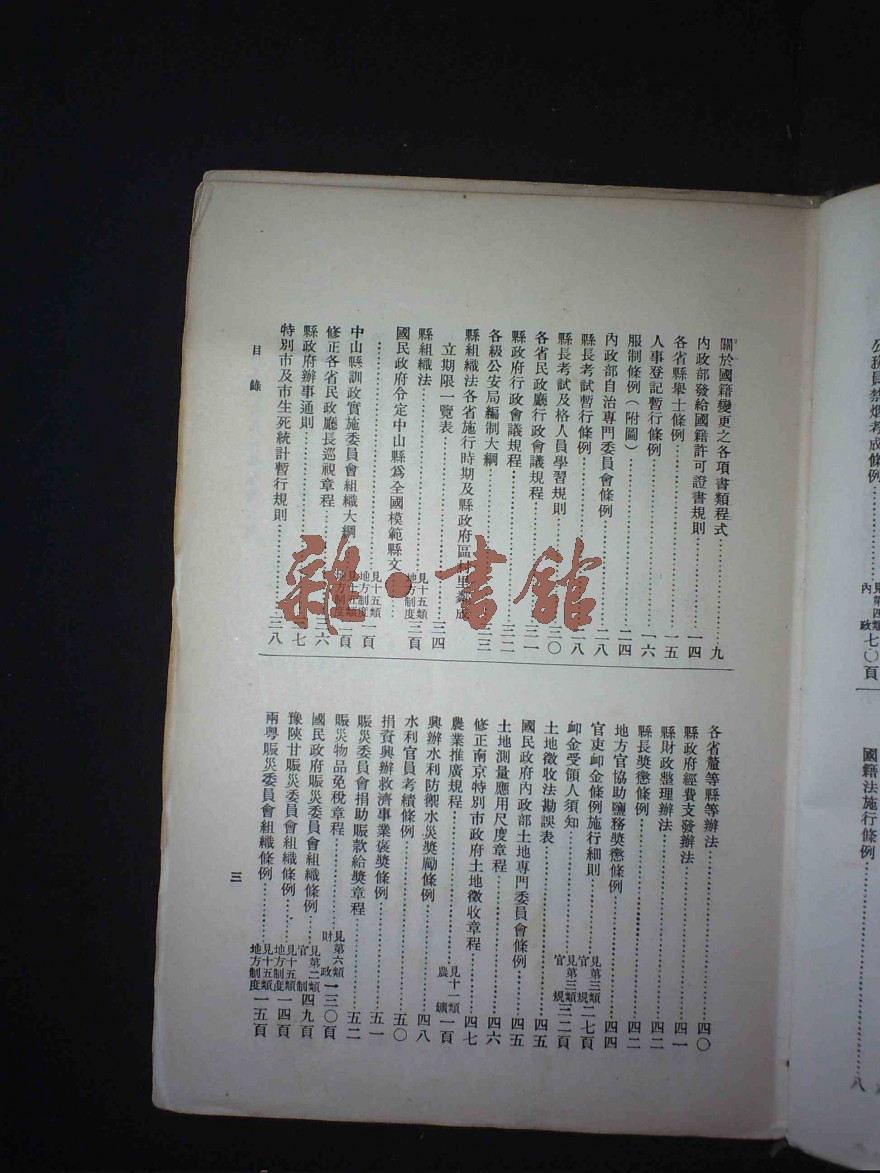 關於國籍變更之各項書類程式……九
內政部發給國籍許可證書規則……一四
各省縣舉士條例……一五
人事登記暫行條例……一六
服制條例(附圖)……二四
內政部自治專門委員會條例……二八
縣長考試暫行條例……二八
縣長考試及格人員學習規則……三〇
各省民政廳行政會議規程……三一
縣政府行政會議規程……三二
各級公安局編制大綱……三三
縣組織法各省施行時期及縣政府區村里鄰成
立期限一覽表……三四
縣組織法……見十五類地方制度三頁
國民政府令定中山縣爲全國模範縣文……
……見十五類地方制度一頁
中山縣訓政實施委員會組織大綱……見十五類地方制度二頁
修正各省民政廳長巡視章程……三六
縣政府辦事通則……三七
特別市及市生死統計暫行規則……三八
目錄
各省釐等縣等辦法……四〇
縣政府經費支發辦法……四一
縣財政整理辦法……四二
縣長獎懲條例……四二
地方官協助鹽務獎懲條例……四四
官吏卹金條例施行細則……見第三類官規二七頁
卹金受領人須知……見第三類官規三二頁
土地徵收法勘誤表……四五
國民政府內政部土地專門委員會條例……四五
土地測量應用尺度章程……四六
修正南京特別市政府土地徵收章程……四七
農業推廣規程……見十一類農鑛一頁
興辦水利防禦水災獎勵條例……四八
水利官員考績條例……五〇
捐資興辦救濟事業褒獎條例……五一
賑災委員會捐助賑款給獎章程……五二
賑災物品免稅章程……見第六類財政一三〇頁
國民政府賑災委員會組織條例……見第二類官制四九頁
豫陝甘賑災委員會組織條例……見十五類地方制度一四頁
兩粵賑災委員會組織條例……見十五類地方制度一五頁
三
公務員禁烟考成條例……見第四類內政七〇頁
國籍法施行條例……八
雜·書館